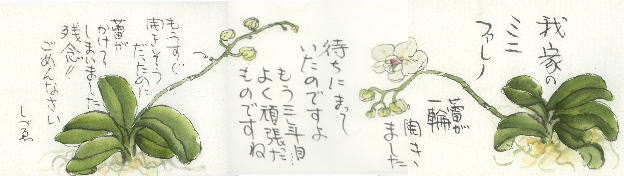 我家の
ミニ
ファレノ
蕾が
一輪
開き
ました
待ちにまって
いたのですよ
もう三年目
よく頑張った
ものですね
もうすぐ
開きそう
だったのに
蕾が
かけて
しまいました
残念!!
ごめんなさい
しづゑ